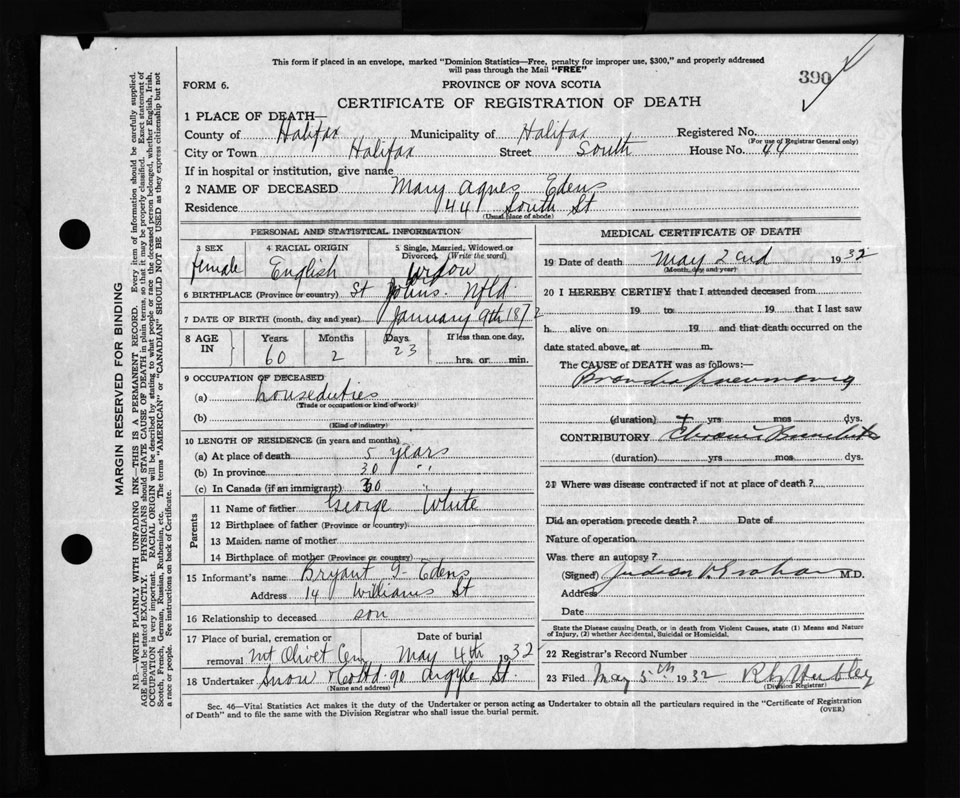 This form if placed in an envelope, marked "Dominion Statistics—Free, penalty for improper use, $300," and properly addressed
will pass through the Mail "FREE"
390
FORM 6.
PROVINCE OF NOVA SCOTIA
CERTIFICATE OF REGISTRATION OF DEATH
1 PLACE OF DEATH—
County of Halifax Municipality of Halifax Registered No.
(For use of Registrar General only)
City or Town Halifax Street South House No. 44
If in hospital or institution, give name
2 NAME OF DECEASED Mary Agnes Edens
Residence 44 South St
(Usual place of abode)
PERSONAL AND STATISTICAL INFORMATION
3 SEX 4 RACIAL ORIGIN 5 Single, Married, Widowed or
Divorced, (Write the word)
female English Widow
6 BIRTHPLACE (Province or country) St Johns. Nfld.
7 DATE OF BIRTH (month, day and year) January 9th 1872
8 AGE IN Years Months Days If less than one day,
60 2 23 hrs. or min.
9 OCCUPATION OF DECEASED
(a) houseduties
(Trade or occupation or kind of work)
(b)
(Kind of industry)
10 LENGTH OF RESIDENCE (in years and months)
(a) At place of death 5 years
(b) In province 30 "
(c) In Canada (if an immigrant) 30 "
Parents
11 Name of father George White
12 Birthplace of father (Province or country)
13 Maiden name of mother
14 Birthplace of mother (Province or country)
15 Informant's name Bryant G. Edens
Address 14 Williams St
16 Relationship to deceased son
17 Place of burial, cremation or Date of burial
removal Mt Olivet Cem May 4th 1932
18 Undertaker Snow & Co Ltd 90 Argyle St.
(Name and address)
MEDICAL CERTIFICATE OF DEATH
19 Date of death May 2nd 1932
(Month, day and year)
20 I HEREBY CERTIFY that I attended deceased from
19 to 19 that I last saw
h alive on 19 and that death occurred on
date stated above, at m.
The CAUSE of DEATH was as follows:—
Bronchopneumonia
(duration) yrs mos dys.
CONTRIBUTORY Chronic Bronchitis
(duration) yrs mos dys.
21 Where was disease contracted if not at place of death?
Did an operation precede death? Date of
Nature of operation
Was there an autopsy?
(Signed) Judson V. Graham M.D.
Address
Date
State the Disease causing Death, or in death from Violent Causes, state (1) Means and Nature
of Injury, (2) whether Accidental, Suicidal or Homicidal.
22 Registrar's Record Number
23 Filed May 5th 1932 Hubley
(Division Registrar)
Sec. 46—Vital Statistics Act makes it the duty of the Undertaker or person acting as Undertaker to obtain all the particulars required in the "Certificate of Registration
of Death" and to file the same with the Division Registrar who shall issue the burial permit. (OVER)
MARGIN RESERVED FOR BINDING
N.B.—WRITE PLAINLY WITH UNFADING INK—THIS IS A PERMANENT RECORD. Every item of information should be carefully supplied.
AGE should be stated EXACTLY. PHYSICIANS should STATE CAUSE OF DEATH in plain terms, so that it may be properly classified. Exact statement of
OCCUPATION is very important. RACIAL ORIGIN will be described by stating to what people or race the deceased person belonged, whether English, Irish,
Scotch, French, German, Russian, Ruthenian, etc. The terms "AMERICAN" or "CANADIAN" SHOULD NOT BE USED as they express citizenship but not
a race or people. See instructions on back of Certificate.